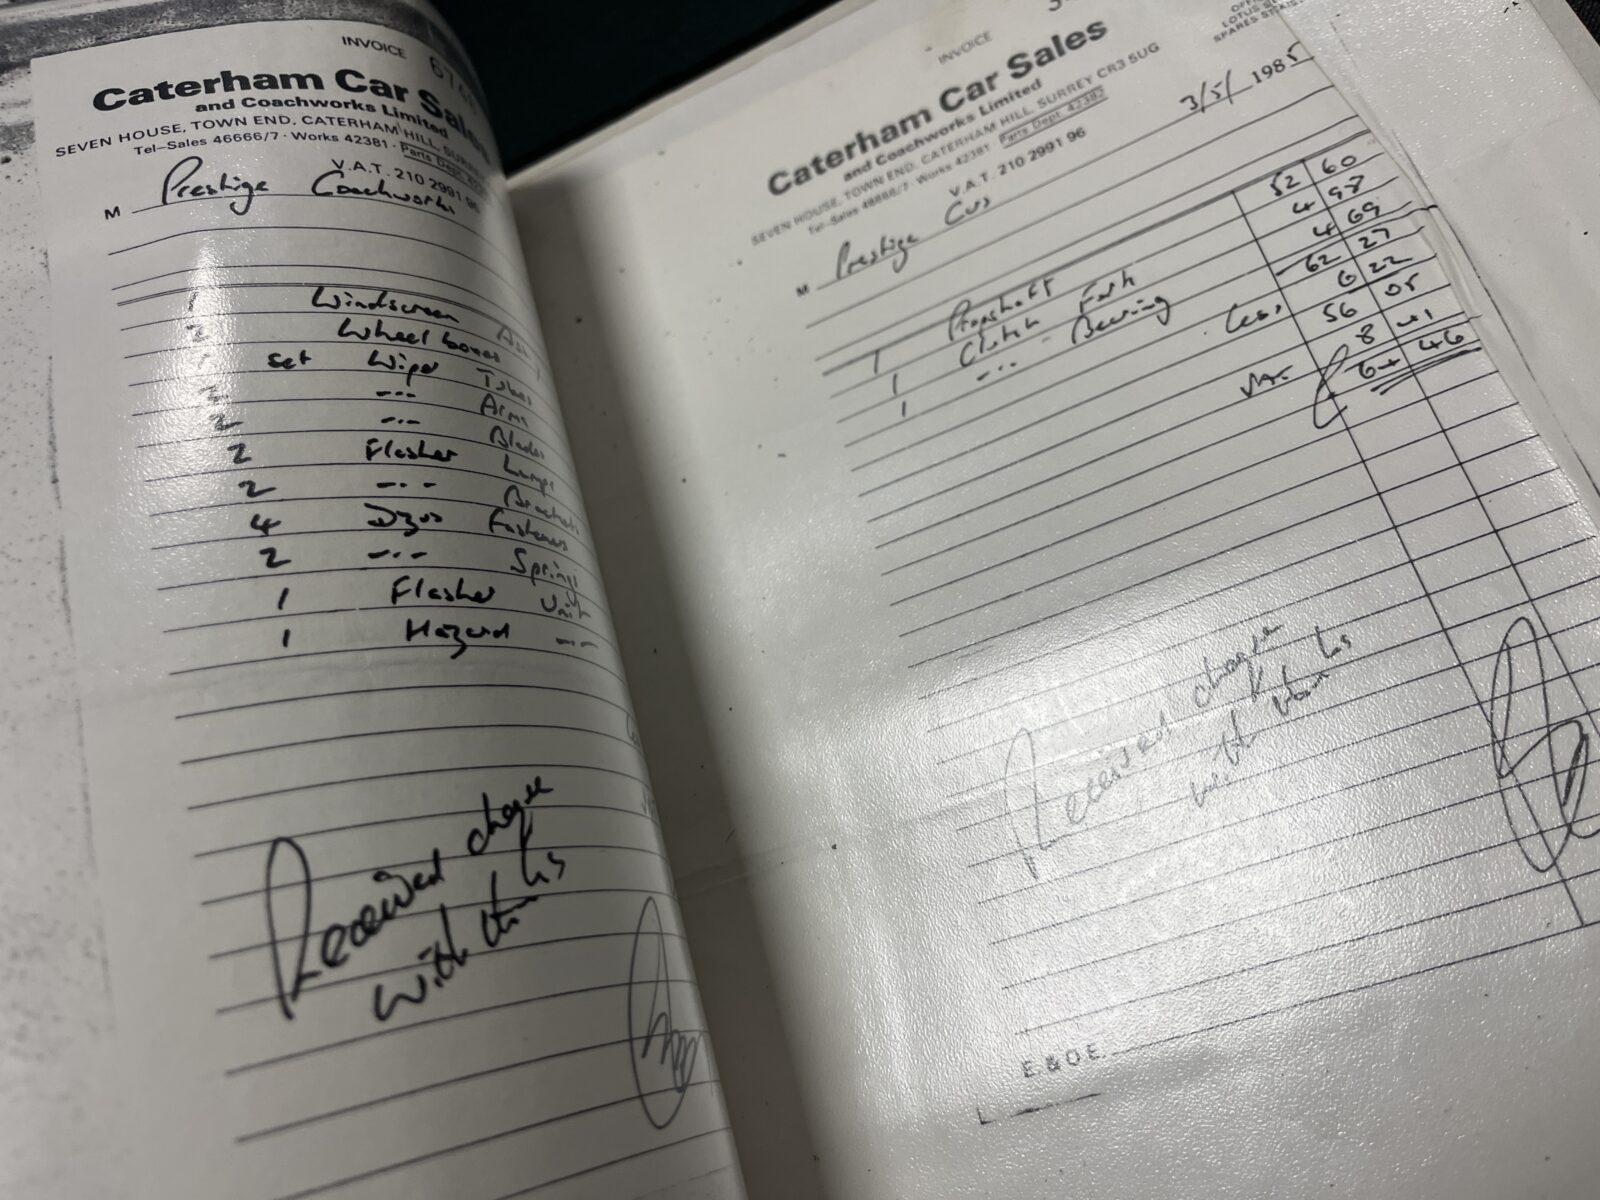 INVOICE 674
Caterham Car Sales
and Coachworks Limited
SEVEN HOUSE, TOWN END, CATERHAM HILL, SURREY
Tel–Sales 46666/7 · Works 42381 · Parts Dept.
V.A.T. 210 2991 96
M Prestige Coachworks
1 Windscreen
2 Wheel boxes
set Wiper Tubes
2 -"- Arms
2 -"- Blades
2 Flasher Lamps
2 -"- Brackets
4 Dzus Fasteners
2 -"- Springs
1 Flasher Unit
1 Hazard -"-
Received cheque
with thanks
INVOICE
LOTUS
SPARES
Caterham Car Sales
and Coachworks Limited
SEVEN HOUSE, TOWN END, CATERHAM HILL, SURREY CR3 5UG
Tel–Sales 46666/7 · Works 42381 · Parts Dept. 42382
V.A.T. 210 2991 96
3/5/ 1985
M Prestige Cars
1 Propshaft 52 60
1 Clutch Fork 4 98
1 -"- Bearing 4 69
62 27
Less 6 22
56 05
VAT 8 41
64 46
Received cheque
with thanks
E & O E